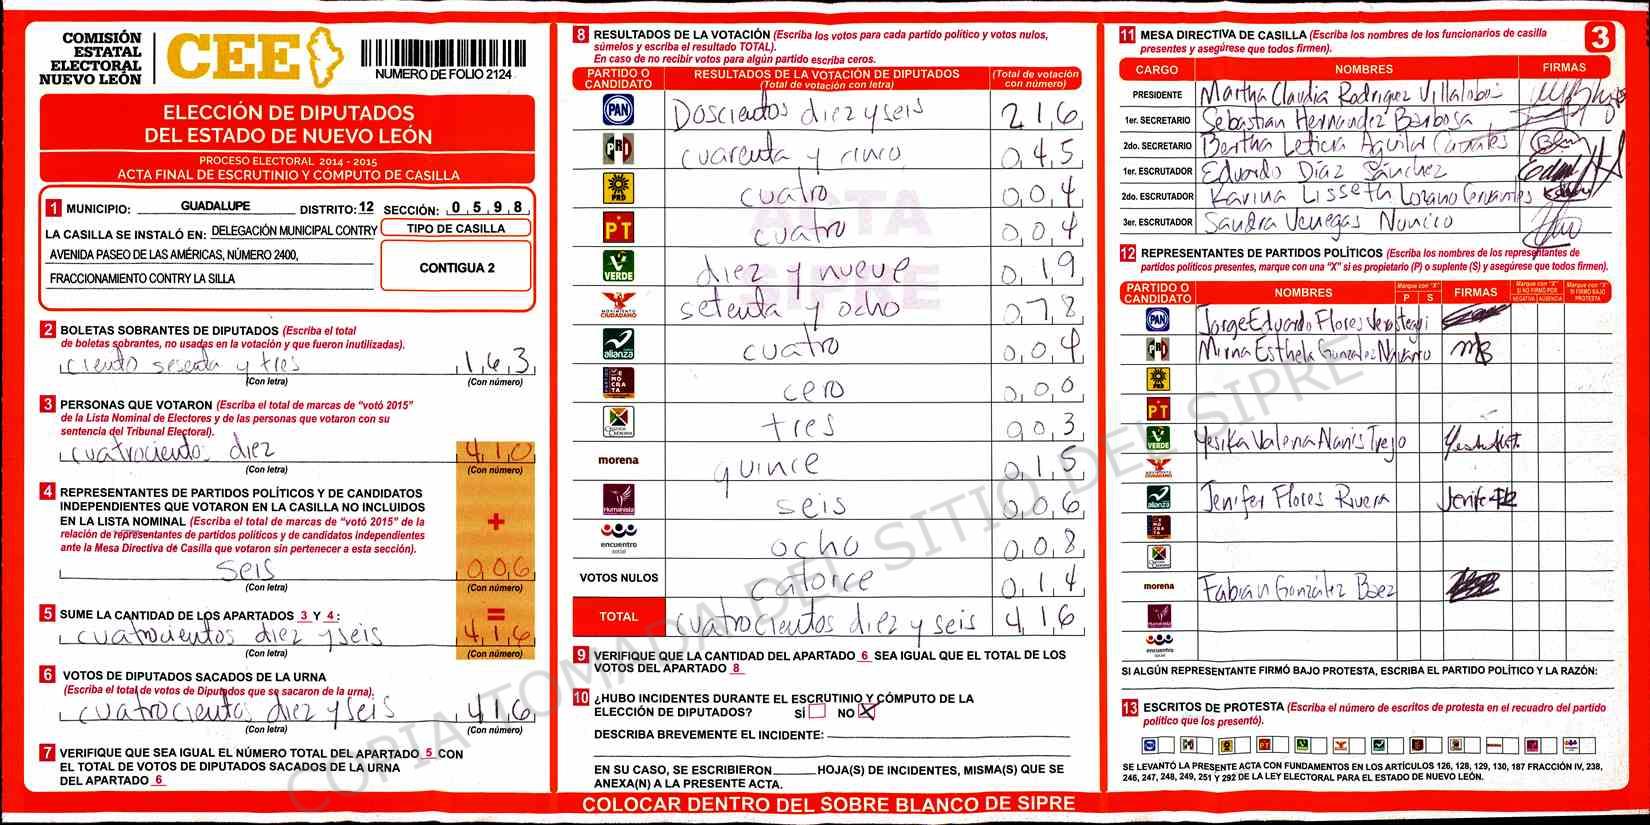 COMISIÓN
ESTATAL
ELECTORAL
NUEVO LEÓN
CEE
NUMERO DE FOLIO 2124
ELECCIÓN DE DIPUTADOS
DEL ESTADO DE NUEVO LEÓN
PROCESO ELECTORAL 2014 - 2015
ACTA FINAL DE ESCRUTINIO Y CÓMPUTO DE CASILLA
1 MUNICIPIO: GUADALUPE DISTRITO: 12 SECCIÓN: 0 5 9 8
LA CASILLA SE INSTALÓ EN: DELEGACIÓN MUNICIPAL CONTRY
AVENIDA PASEO DE LAS AMÉRICAS, NÚMERO 2400,
FRACCIONAMIENTO CONTRY LA SILLA
TIPO DE CASILLA
CONTIGUA 2
2 BOLETAS SOBRANTES DE DIPUTADOS (Escriba el total
de boletas sobrantes, no usadas en la votación y que fueron inutilizadas).
ciento sesenta y tres 1 6 3
(Con letra) (Con número)
3 PERSONAS QUE VOTARON (Escriba el total de marcas de "votó 2015"
de la Lista Nominal de Electores y de las personas que votaron con su
sentencia del Tribunal Electoral).
cuatrociento diez 4 1 0
(Con letra) (Con número)
4 REPRESENTANTES DE PARTIDOS POLÍTICOS Y DE CANDIDATOS
INDEPENDIENTES QUE VOTARON EN LA CASILLA NO INCLUIDOS
EN LA LISTA NOMINAL (Escriba el total de marcas de "votó 2015" de la
relación de representantes de partidos políticos y de candidatos independientes
ante la Mesa Directiva de Casilla que votaron sin pertenecer a esta sección).
+
seis 0 0 6
(Con letra) (Con número)
5 SUME LA CANTIDAD DE LOS APARTADOS 3 Y 4:
=
cuatrocientos diez y seis 4 1 6
(Con letra) (Con número)
6 VOTOS DE DIPUTADOS SACADOS DE LA URNA
(Escriba el total de votos de Diputados que se sacaron de la urna).
cuatrocientos diez y seis 4 1 6
(Con letra) (Con número)
7 VERIFIQUE QUE SEA IGUAL EL NÚMERO TOTAL DEL APARTADO 5 CON
EL TOTAL DE VOTOS DE DIPUTADOS SACADOS DE LA URNA
DEL APARTADO 6
8 RESULTADOS DE LA VOTACIÓN (Escriba los votos para cada partido político y votos nulos,
súmelos y escriba el resultado TOTAL).
En caso de no recibir votos para algún partido escriba ceros.
PARTIDO O CANDIDATO RESULTADOS DE LA VOTACIÓN DE DIPUTADOS (Total de votación con letra) (Total de votación con número)
PAN Doscientos diez y seis 2 1 6
PRI cuarenta y cinco 0 4 5
PRD cuatro 0 0 4
PT cuatro 0 0 4
VERDE diez y nueve 0 1 9
MOVIMIENTO CIUDADANO setenta y ocho 0 7 8
alianza cuatro 0 0 4
DEMOCRATA cero 0 0 0
CRUZADA CIUDADANA tres 0 0 3
morena quince 0 1 5
Humanista seis 0 0 6
encuentro social ocho 0 0 8
VOTOS NULOS catorce 0 1 4
TOTAL cuatrocientos diez y seis 4 1 6
ACTA
SIPRE
9 VERIFIQUE QUE LA CANTIDAD DEL APARTADO 6 SEA IGUAL QUE EL TOTAL DE LOS
VOTOS DEL APARTADO 8
10 ¿HUBO INCIDENTES DURANTE EL ESCRUTINIO Y CÓMPUTO DE LA
ELECCIÓN DE DIPUTADOS? SÍ NO X
DESCRIBA BREVEMENTE EL INCIDENTE:
EN SU CASO, SE ESCRIBIERON HOJA(S) DE INCIDENTES, MISMA(S) QUE SE
ANEXA(N) A LA PRESENTE ACTA.
COLOCAR DENTRO DEL SOBRE BLANCO DE SIPRE
11 MESA DIRECTIVA DE CASILLA (Escriba los nombres de los funcionarios de casilla
presentes y asegúrese que todos firmen).
3
CARGO NOMBRES FIRMAS
PRESIDENTE Martha Claudia Rodriguez Villalobos
1er. SECRETARIO Sebastian Hernandez Barbosa
2do. SECRETARIO Bertha Leticia Aguilar
1er. ESCRUTADOR Eduardo Díaz Sánchez
2do. ESCRUTADOR Karina Lisseth Lozano Cervantes
3er. ESCRUTADOR Sandra Venegas Nuncio
12 REPRESENTANTES DE PARTIDOS POLÍTICOS (Escriba los nombres de los representantes de
partidos políticos presentes, marque con una "X" si es propietario (P) o suplente (S) y asegúrese que todos firmen).
PARTIDO O CANDIDATO NOMBRES Marque con "X" P S FIRMAS Marque con "X" SI NO FIRMÓ POR NEGATIVA AUSENCIA Marque con "X" SI FIRMÓ BAJO PROTESTA
PAN Jorge Eduardo Flores Verastegui
PRI Mirna Esthela Gonzalez Navarro
PRD
PT
VERDE Yesika Valeria Nanis Trejo
alianza Jenifer Flores Rivera
morena Fabian González Baez
encuentro social
SI ALGÚN REPRESENTANTE FIRMÓ BAJO PROTESTA, ESCRIBA EL PARTIDO POLÍTICO Y LA RAZÓN:
13 ESCRITOS DE PROTESTA (Escriba el número de escritos de protesta en el recuadro del partido
político que los presentó).
SE LEVANTÓ LA PRESENTE ACTA CON FUNDAMENTOS EN LOS ARTÍCULOS 126, 128, 129, 130, 187 FRACCIÓN IV, 238,
246, 247, 248, 249, 251 Y 292 DE LA LEY ELECTORAL PARA EL ESTADO DE NUEVO LEÓN.
COPIA TOMADA DEL SITIO DEL SIPRE